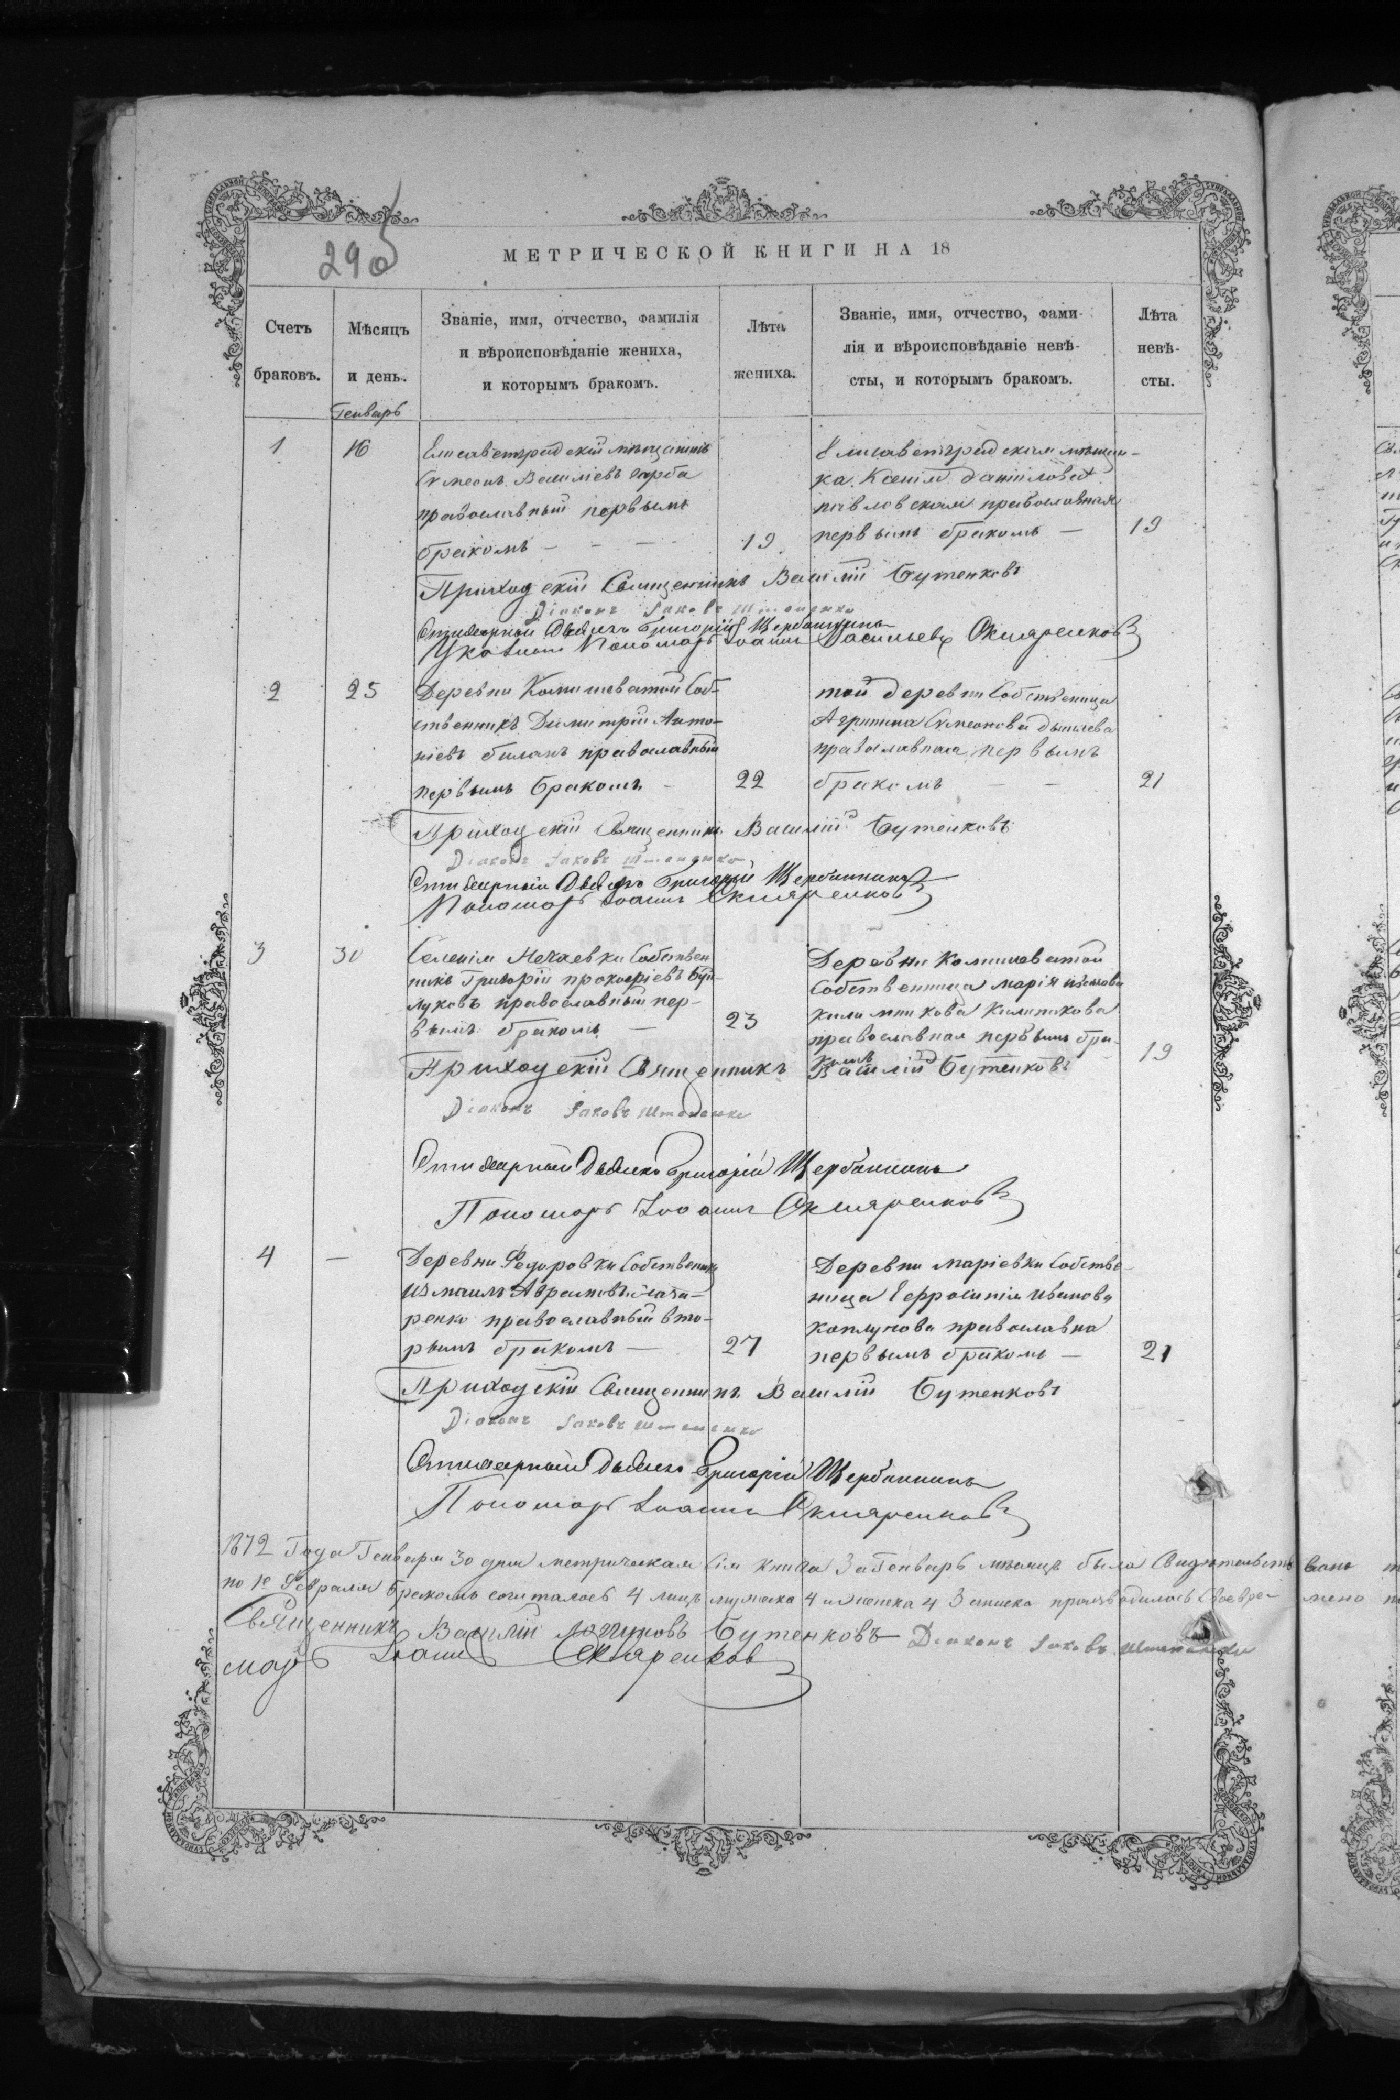 290
МЕТРИЧЕСКОЙ КНИГИ НА 18
Счетъ
браковъ.
Мѣсяцъ
и день.
Званіе, имя, отчество, фамилія
и вѣроисповѣданіе жениха,
и которымъ бракомъ.
Лѣта
жениха.
Званіе, имя, отчество, фами-
лія и вѣроисповѣданіе невѣ-
сты, и которымъ бракомъ.
Лѣта
невѣ-
сты.
Генварь
1
16
Елисаветградскій мѣщанинъ
Сѵмеонъ Василіевъ
православный первымъ
бракомъ
19
Елисаветградская мѣщан-
ка Ксенія Даніилова
павловская православная
первымъ бракомъ
19
Приходскій Священникъ Василій Бутенковъ
Діаконъ Іаковъ
Григорій Щербанинъ
Пономарь Іоаннъ Васильевъ Скляренковъ
2
25
Деревни Комишеватой Соб-
ственникъ Димитрій Анто-
ніевъ Биланъ православный
первымъ бракомъ
22
той деревни Собственница
Агрипина Сѵмеонова
православная первымъ
бракомъ
21
Приходскій Священникъ Василій Бутенковъ
Діаконъ Іаковъ
Григорій Щербанинъ
Пономарь Іоаннъ Скляренковъ
3
30
Селенія Нечаевки Собствен
никъ Григорій прокопіевъ
луковъ православный пер-
вымъ бракомъ
23
Деревни Комишеватой
Собственница Марія
православная первымъ бра-
комъ
19
Приходскій Священникъ Василій Бутенковъ
Діаконъ Іаковъ
Григорій Щербанинъ
Пономарь Іоаннъ Скляренковъ
4
—
Деревни Федоровки Собственникъ
Измаилъ Авраамовъ
ренко православный вто-
рымъ бракомъ
27
Деревни Маріевки Собстве-
ница Ефросинія Иванова
Каплунова православна
первымъ бракомъ
21
Приходскій Священникъ Василій Бутенковъ
Діаконъ Іаковъ
Григорій Щербанинъ
Пономарь Іоаннъ Скляренковъ
1872 Года Генваря 30 дня метрическая сія книга За Генварь мѣсяцъ была Свидѣтельствована
по 1е Февраля бракомъ сочеталось 4 лицъ мужеска 4 и женска 4 Записка производилась Своевременно
Священникъ Василій Логиновъ Бутенковъ Діаконъ Іаковъ
марь Іоаннъ Скляренковъ